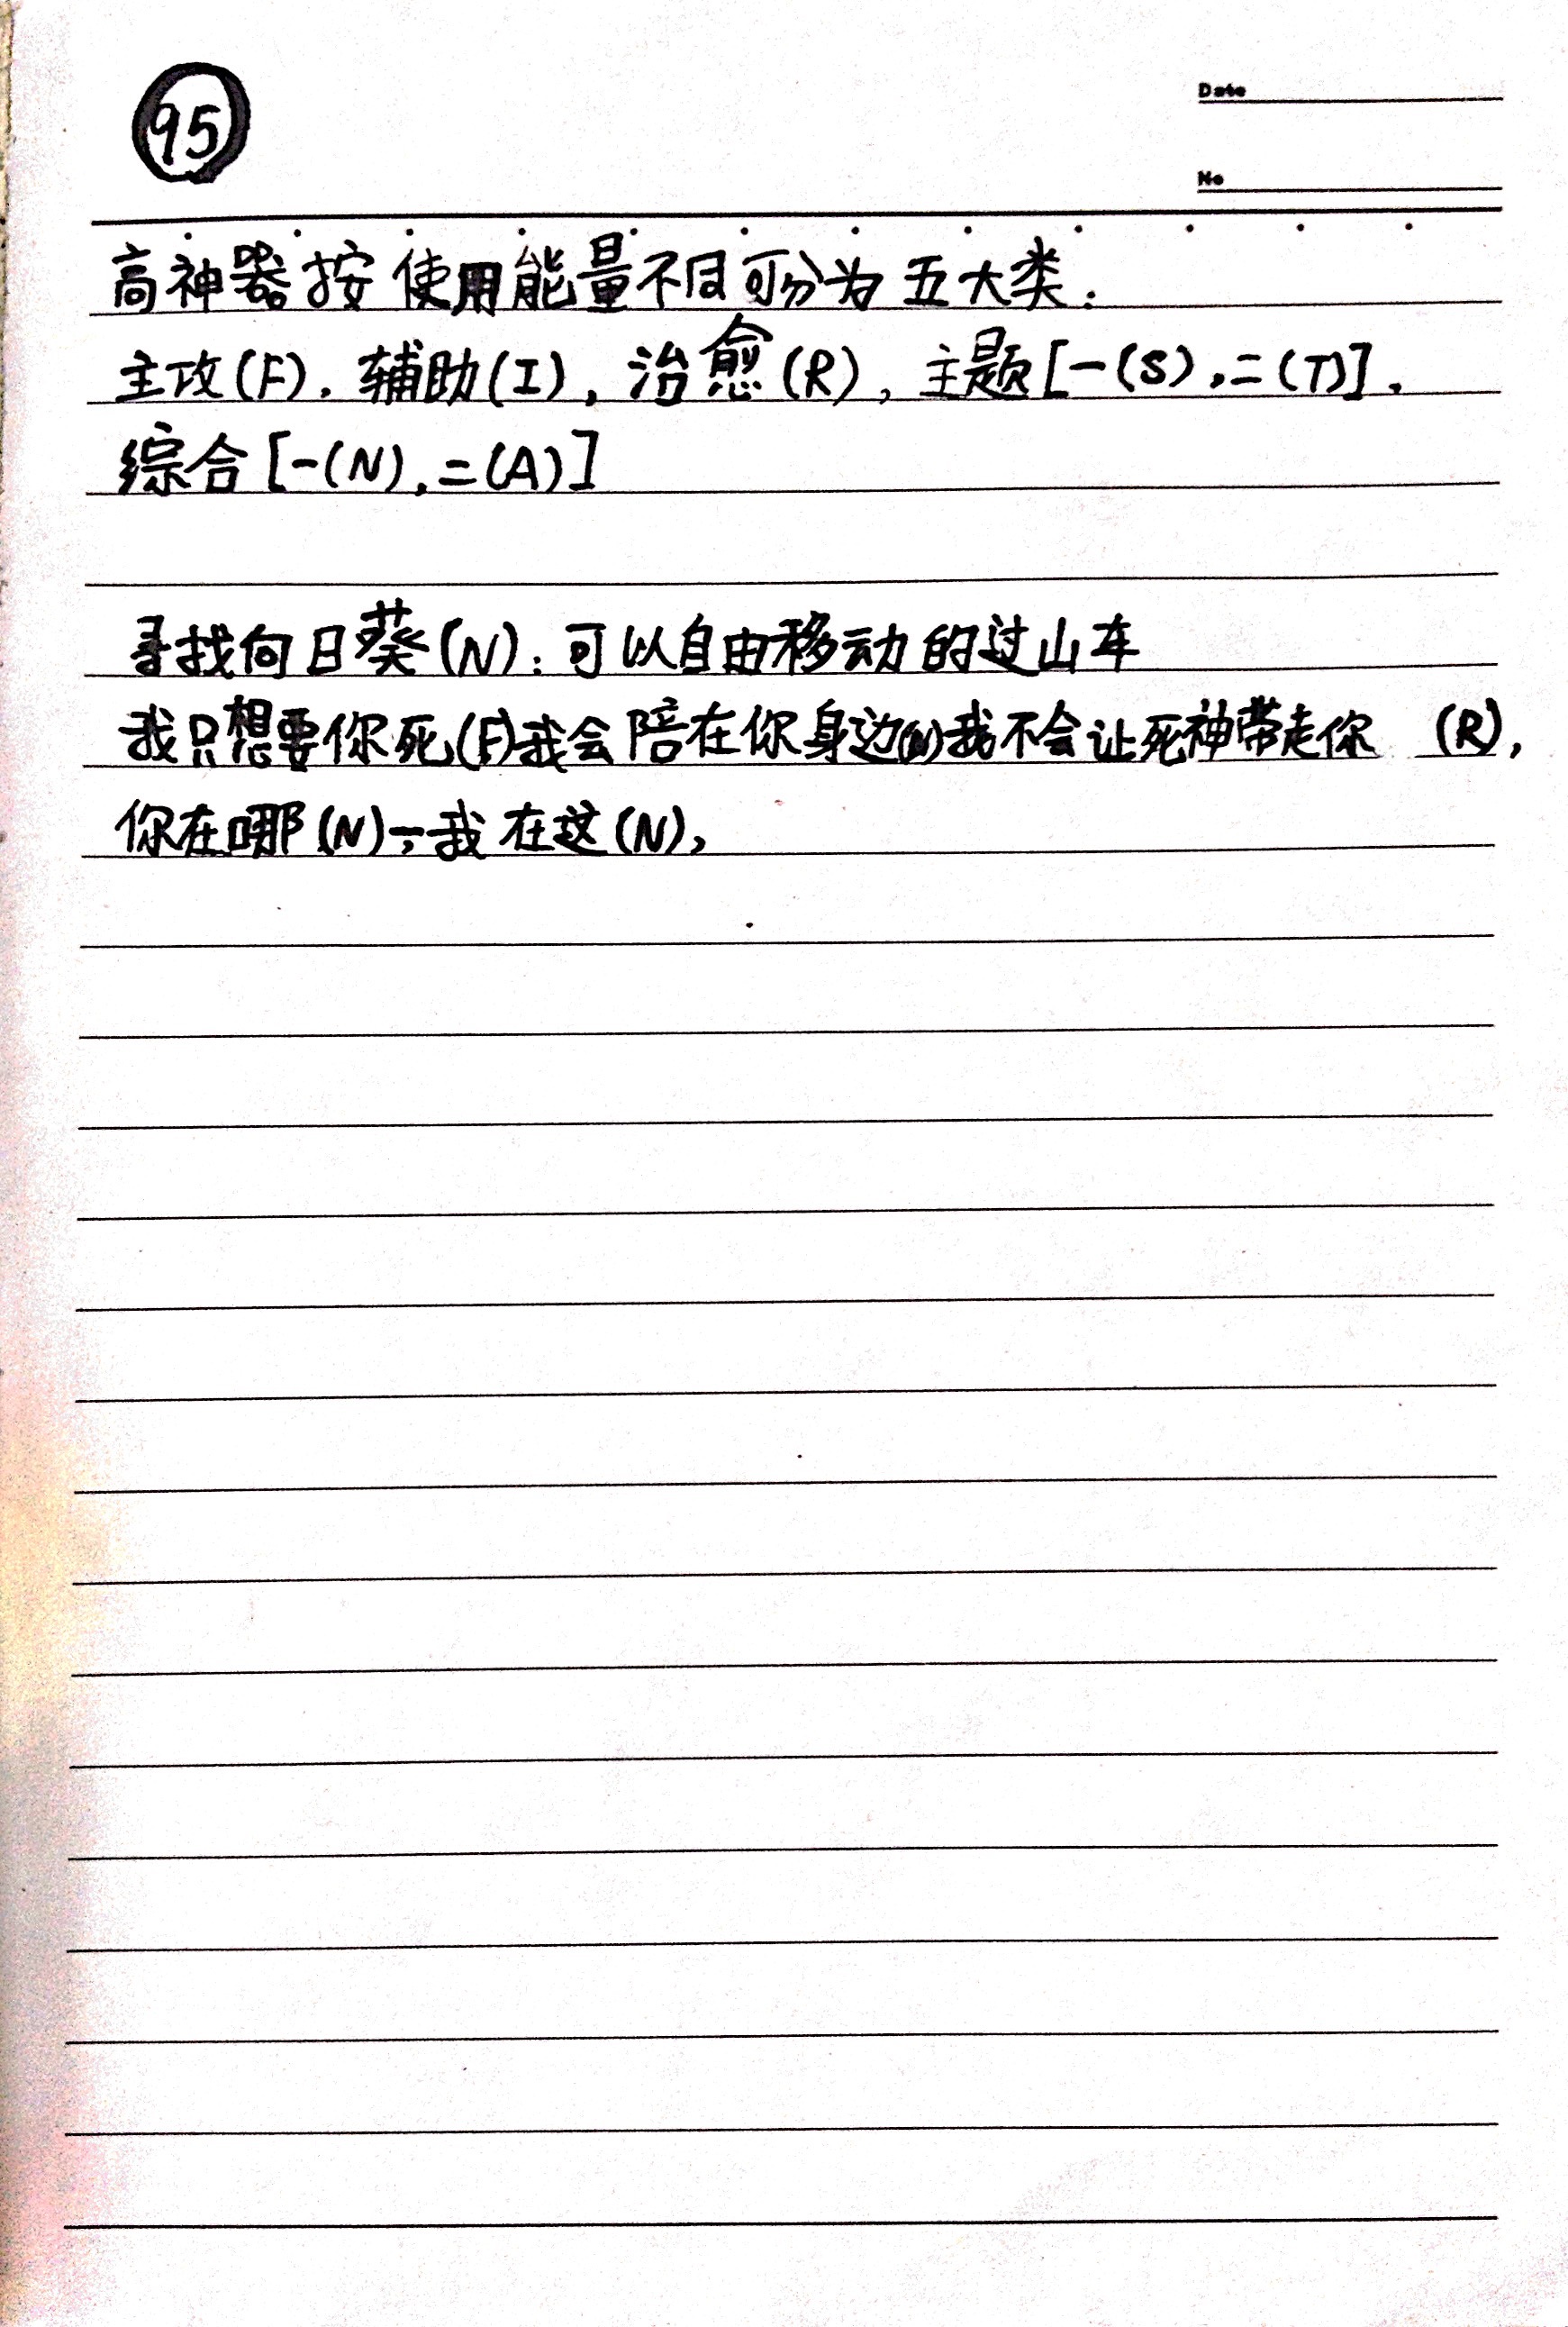 95
Date
No
高神器按使用能量不同可分为五大类:
主攻(F),辅助(I),治愈(R),主题[一(S),二(T)],
综合[一(N),二(A)]
寻找向日葵(N):可以自由移动的过山车
我只想要你死(F)我会陪在你身边(N)我不会让死神带走你 (R),
你在哪(N)—我在这(N),